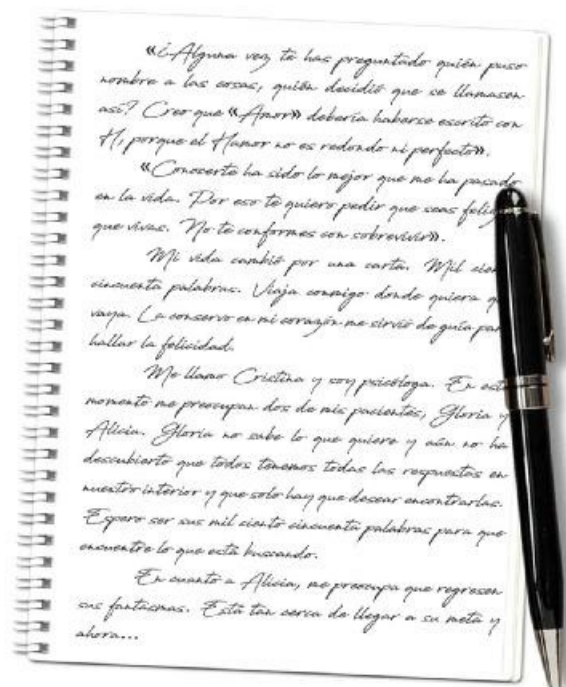 «¿Alguna vez te has preguntado quién puso
nombre a las cosas, quién decidió que se llamasen
así? Creo que «Amor» debería haberse escrito con
H, porque el Hamor no es redondo ni perfecto».
«Conocerte ha sido lo mejor que me ha pasado
en la vida. Por eso te quiero pedir que seas feliz,
que vivas. No te conformes con sobrevivir».
Mi vida cambió por una carta. Mil
cincuenta palabras. Viaja conmigo donde quiera
vaya. La conservo en mi corazón me sirvió de guía
hallar la felicidad.
Me llamo Cristina y soy psicóloga. En
momento me preocupan dos de mis pacientes, Gloria y
Alicia. Gloria no sabe lo que quiere y aún no ha
descubierto que todos tenemos todas las respuestas en
nuestro interior y que solo hay que desear encontrarlas.
Espero ser sus mil ciento cincuenta palabras para que
encuentre lo que está buscando.
En cuanto a Alicia, me preocupa que regresen
sus fantasmas. Está tan cerca de llegar a su meta y
ahora...